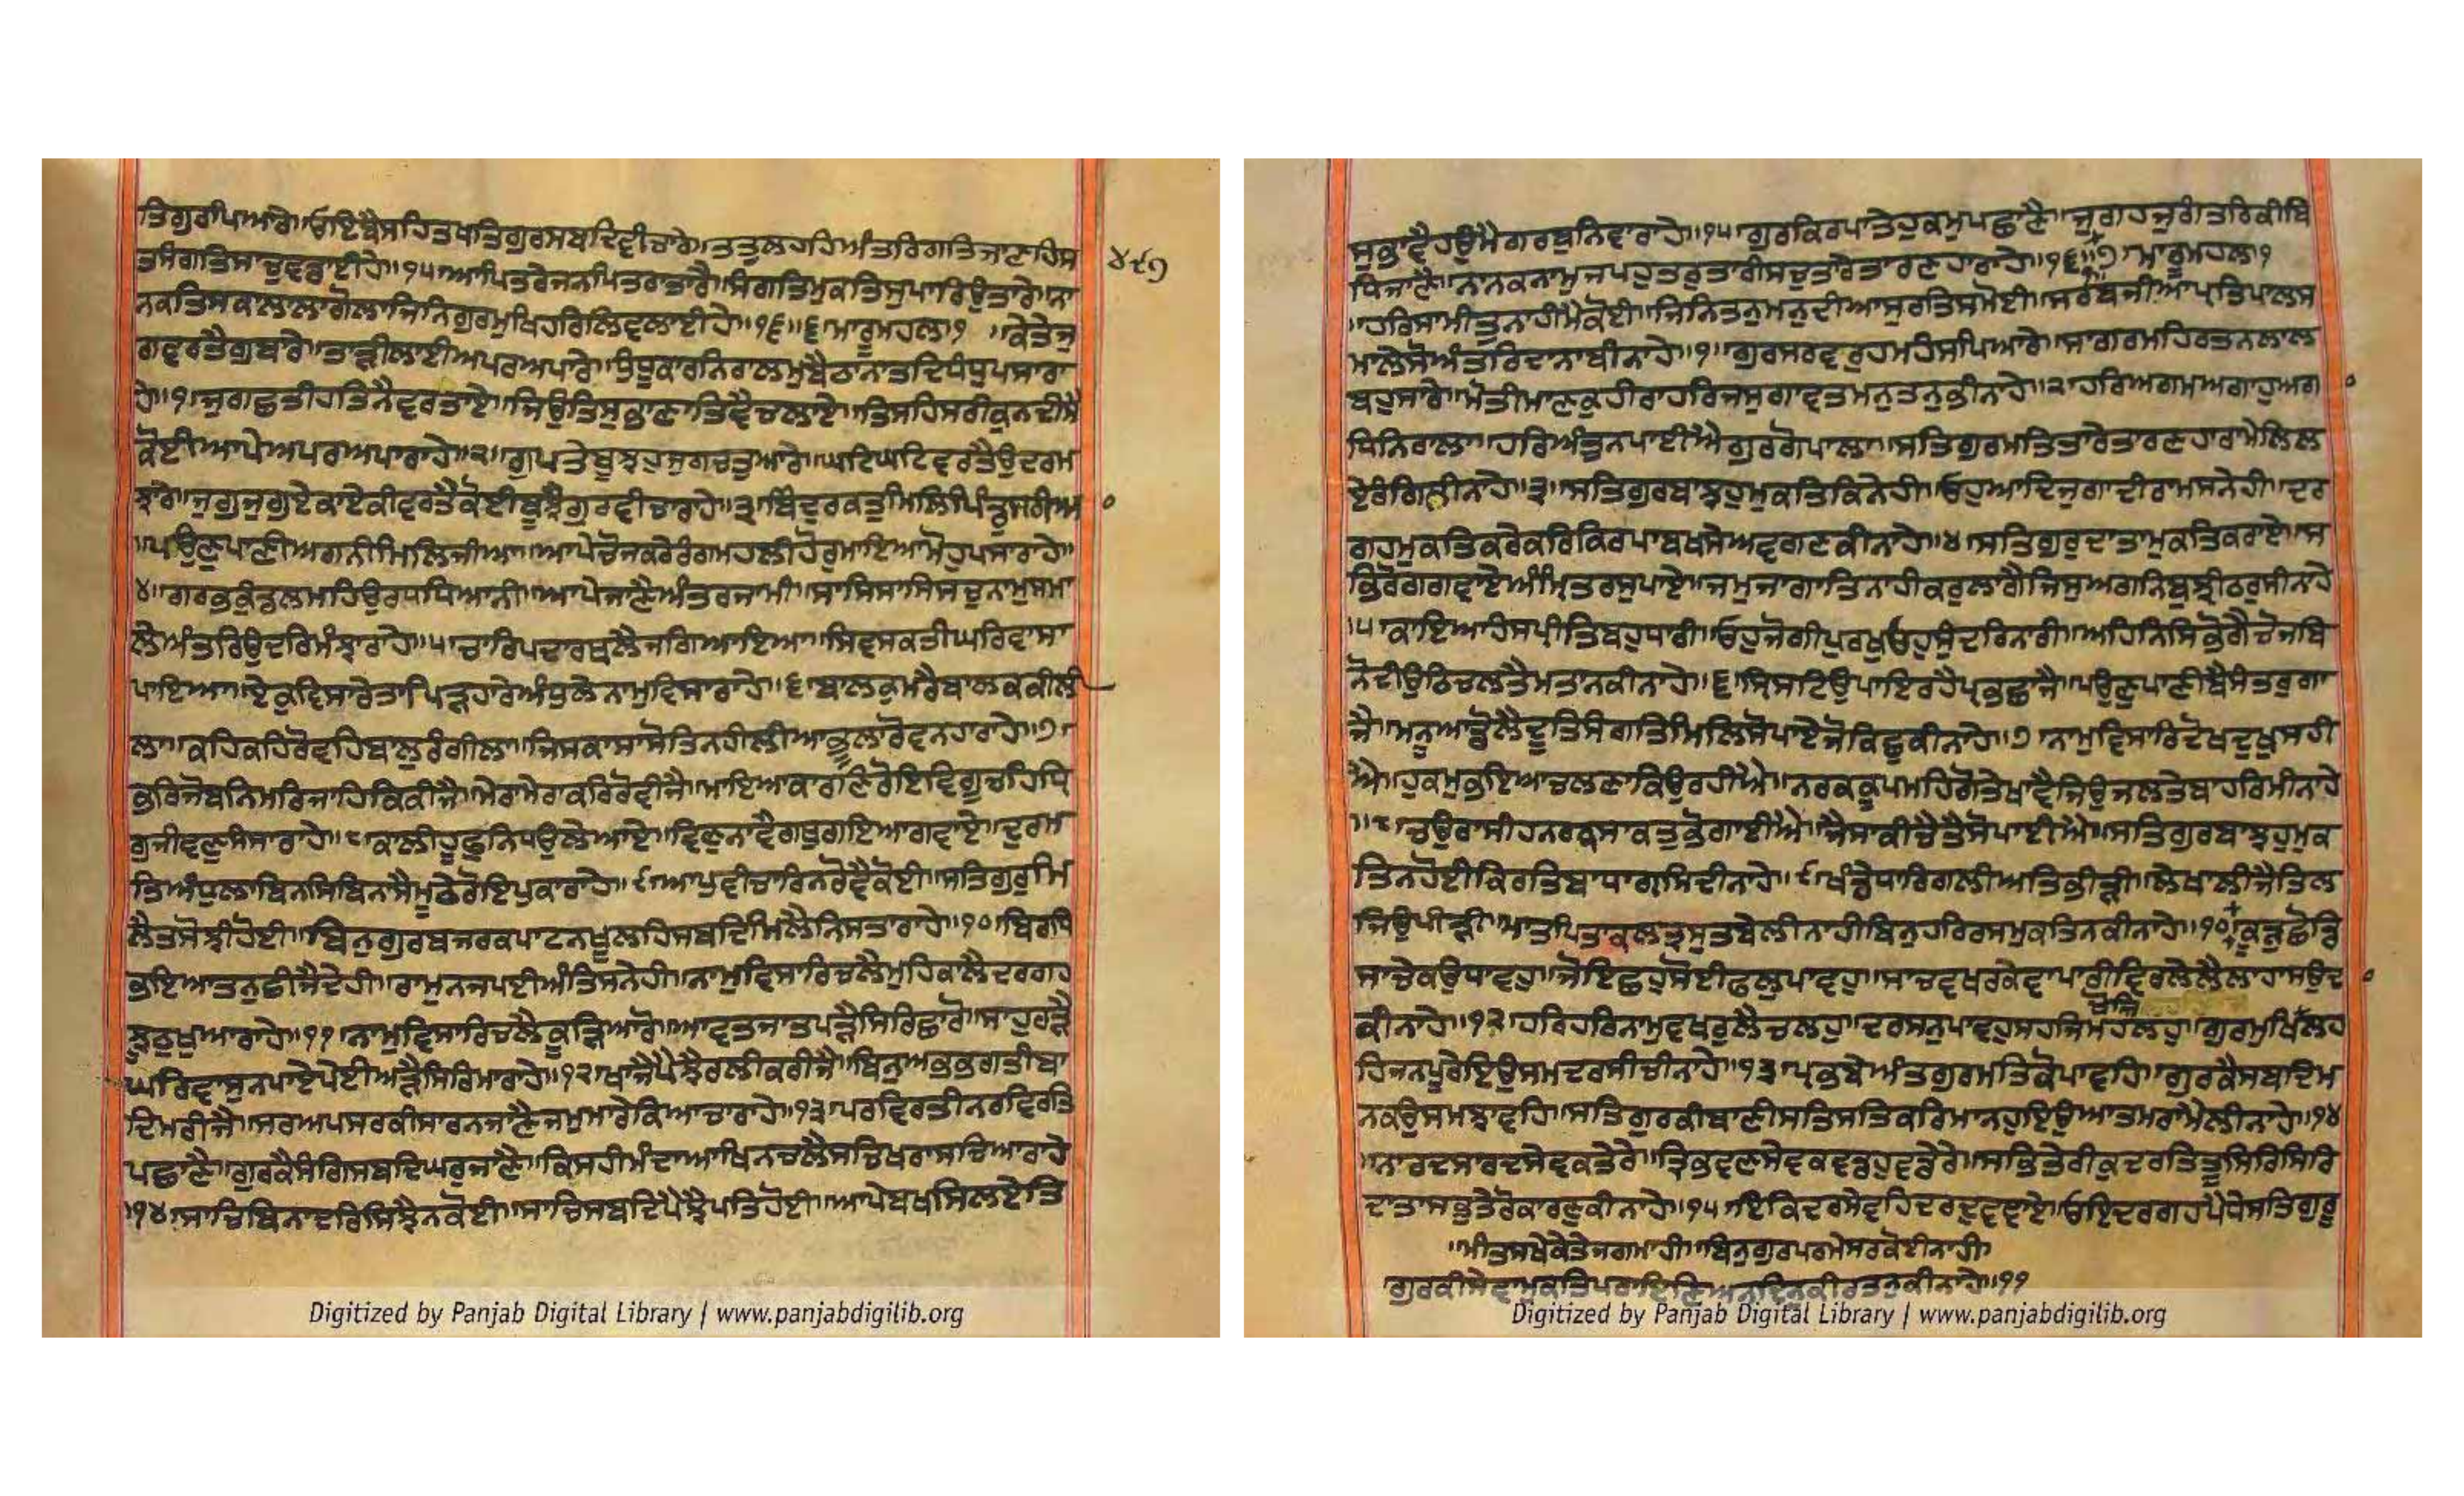 ਤਿਗੁਰੀਪਿਆਰੇ॥ਓਇਬੈਸਹਿਤਖਤਿਗੁਰਸਬਦਿਵੀਚਾਰੇ॥ਤਤੁਲਹਹਿਅੰਤਰਿਗਤਿਜਾਣਹਿਸ
ਤਸੰਗਤਿਸਾਚੁਵਡਾਈਹੇ॥੧੫॥ਆਪਿਤਰੈਜਨਪਿਤਰਾਤਾਰੈ॥ਸੰਗਤਿਮੁਕਤਿਸੁਪਾਰਿਉਤਾਰੇ॥ਨਾ
ਨਕਤਿਸਕਲਾਲਾਗੋਲਾਜਿਨਿਗੁਰਮੁਖਿਹਰਿਲਿਵਲਾਈਹੇ॥੧੬॥੬॥ਮਾਰੂਮਹਲਾ੧ ॥ਕੇਤੇਜੁ
ਗਵਰਤੈਗੁਬਾਰੇ॥ਤਾੜੀਲਾਈਅਪਰਅਪਾਰੇ॥ਧੁੰਧੂਕਾਰਨਿਰਾਲਮੁਬੈਠਾਨਾਤਦਿਧੰਧੁਪਸਾਰਾ
ਹੇ॥੧॥ਜੁਗਛਤੀਹਤਿਨੈਵਰਤਾਏ॥ਜਿਉਤਿਸੁਭਾਣਾਤਿਵੈਚਲਾਏ॥ਤਿਸਹਿਸਰੀਕੁਨਦੀਸੈ
ਕੋਈਆਪੇਅਪਰਅਪਾਰਾਹੇ॥੨॥ਗੁਪਤੇਬੂਝਹੁਜੁਗਚਤੁਆਰੇ॥ਘਟਿਘਟਿਵਰਤੈਉਦਰਮ
ਝਾਰੇ॥ਜੁਗੁਜੁਗੁਏਕਾਏਕੀਵਰਤੈਕੋਈਬੂਝੈਗੁਰਵੀਚਾਰਾਹੇ॥੩॥ਬਿੰਦੁਰਕਤੁਮਿਲਿਪਿੰਡੁਸਰੀਆ
॥ਪਉਣੁਪਾਣੀਅਗਨੀਮਿਲਿਜੀਆ॥ਆਪੇਚੋਜਕਰੇਰੰਗਮਹਲੀਹੋਰੁਮਾਇਆਮੋਹੁਪਸਾਰਾਹੇ॥
੪॥ਗਰਭਕੁੰਡਲਮਹਿਉਰਧਧਿਆਨੀ॥ਆਪੇਜਾਣੈਅੰਤਰਜਾਮੀ॥ਸਾਸਿਸਾਸਿਸਚੁਨਾਮੁਸਮਾ
ਲੇਅੰਤਰਿਉਦਰਿਮੰਝਾਰਾਹੇ॥੫॥ਚਾਰਿਪਦਾਰਥਲੈਜਗਿਆਇਆ॥ਸਿਵਸਕਤੀਘਰਿਵਾਸਾ
ਪਾਇਆ॥ਏਕੁਵਿਸਾਰੇਤਾਪਿੜਹਾਰੇਅੰਧੁਲੈਨਾਮੁਵਿਸਾਰਾਹੇ॥੬॥ਬਾਲਕੁਮਰੈਬਾਲਕਕੀਲੀ
ਲਾ॥ਕਹਿਕਹਿਰੋਵਹਿਬਾਲੁਰੰਗੀਲਾ॥ਜਿਸਕਾਸਾਸੋਤਿਨਹੀਲੀਆਭੂਲਾਰੋਵਨਹਾਰਾਹੇ॥੭॥
ਭਰਿਜੋਬਨਿਮਰਿਜਾਹਿਕਿਕੀਜੈ॥ਮੇਰਾਮੇਰਾਕਰਿਰੋਵੀਜੈ॥ਮਾਇਆਕਾਰਣਿਰੋਇਵਿਗੂਚਹਿਧ੍ਰਿ
ਗੁਜੀਵਣੁਸੰਸਾਰਾਹੇ॥੮॥ਕਾਲੀਹੂਫੁਨਿਧਉਲੇਆਏ॥ਵਿਣੁਨਾਵੈਗਥੁਗਇਆਗਵਾਏ॥ਦੁਰਮ
ਤਿਅੰਧੁਲਾਬਿਨਸਿਬਿਨਾਸੈਮੂਠੇਰੋਇਪੁਕਾਰਾਹੇ॥੯॥ਆਪੁਵੀਚਾਰਿਨਰੋਵੈਕੋਈ॥ਸਤਿਗੁਰੁਮਿ
ਲੈਤਸੋਝੀਹੋਈ॥ਬਿਨੁਗੁਰਬਜਰਕਪਾਟਨਖੂਲਹਿਸਬਦਿਮਿਲੈਨਿਸਤਾਰਾਹੇ॥੧੦॥ਬਿਰਧਿ
ਭਇਆਤਨੁਛੀਜੈਦੇਹੀ॥ਰਾਮੁਨਜਪਈਅੰਤਿਸਨੇਹੀ॥ਨਾਮੁਵਿਸਾਰਿਚਲੈਮੁਹਿਕਾਲੈਦਰਗਹ
ਝੂਠੁਖੁਆਰਾਹੇ॥੧੧॥ਨਾਮੁਵਿਸਾਰਿਚਲੈਕੂੜਿਆਰੋ॥ਆਵਤਜਾਤਪੜੈਸਿਰਿਛਾਰੋ॥ਸਾਹੁਰੜੈ
ਘਰਿਵਾਸੁਨਪਾਏਪੇਈਅੜੈਸਿਰਿਮਾਰਾਹੇ॥੧੨॥ਖਾਜੈਪੈਝੈਰਲੀਕਰੀਜੈ॥ਬਿਨੁਅਭਭਗਤੀਬਾ
ਦਿਮਰੀਜੈ॥ਸਰਅਪਸਰਕੀਸਾਰਨਜਾਣੈਜਮੁਮਾਰੇਕਿਆਚਾਰਾਹੇ॥੧੩॥ਪਰਵਿਰਤੀਨਰਵਿਰਤਿ
ਪਛਾਣੈ॥ਗੁਰਕੈਸੰਗਿਸਬਦਿਘਰੁਜਾਣੈ॥ਕਿਸਹੀਮੰਦਾਆਖਿਨਚਲੈਸਚਿਖਰਾਸਚਿਆਰਾਹੇ
॥੧੪॥ਸਾਚਿਬਿਨਾਦਰਿਸਿਝੈਨਕੋਈ॥ਸਾਚਿਸਬਦਿਪੈਝੈਪਤਿਹੋਈ॥ਆਪੇਬਖਸਿਲਏਤਿ
੪੯੧
ਸੁਭਾਵੈਹਉਮੈਗਰਬੁਨਿਵਾਰਾਹੇ॥੧੫॥ਗੁਰਕਿਰਪਾਤੇਹੁਕਮੁਪਛਾਣੈ॥ਜੁਗਹਜੁਗੰਤਰਿਕੀਬਿ
ਧਿਜਾਣੈ॥ਨਾਨਕਨਾਮੁਜਪਹੁਤਰੁਤਾਰੀਸਚੁਤਾਰੇਤਾਰਣਹਾਰਾਹੇ॥੧੬॥੭॥ਮਾਰੂਮਹਲਾ੧
॥ਹਰਿਸਾਮੀਤੁਨਾਹੀਮੈਕੋਈ॥ਜਿਨਿਤਨੁਮਨੁਦੀਆਸੁਰਤਿਸਮੋਈ॥ਸਰਬਜੀਆਪ੍ਰਤਿਪਾਲਸ
ਮਾਲੇਸੋਅੰਤਰਿਦਾਨਾਬੀਨਾਹੇ॥੧॥ਗੁਰਸਰਵਰੁਹਮਹੰਸਪਿਆਰੇ॥ਸਾਗਰਮਹਿਰਤਨਲਾਲ
ਬਹੁਸਾਰੇ॥ਮੋਤੀਮਾਣਕੁਹੀਰਾਹਰਿਜਸੁਗਾਵਤਮਨੁਤਨੁਭੀਨਾਹੇ॥੨॥ਹਰਿਅਗਮਅਗਾਹੁਅਗ
ਧਿਨਿਰਾਲਾ॥ਹਰਿਅੰਤੁਨਪਾਈਐਗੁਰਗੋਪਾਲਾ॥ਸਤਿਗੁਰਮਤਿਤਾਰੇਤਾਰਣਹਾਰਾਮੇਲਿਲ
ਏਰੰਗਿਲੀਨਾਹੇ॥੩॥ਸਤਿਗੁਰਬਾਝਹੁਮੁਕਤਿਕਿਨੇਹੀ॥ਓਹੁਆਦਿਜੁਗਾਦੀਰਾਮਸਨੇਹੀ॥ਦਰ
ਗਹਮੁਕਤਿਕਰੇਕਰਿਕਿਰਪਾਬਖਸੇਅਵਗਣਕੀਨਾਹੇ॥੪॥ਸਤਿਗੁਰੁਦਾਤਾਮੁਕਤਿਕਰਾਏ॥ਸ
ਭਿਰੋਗਗਵਾਏਅੰਮ੍ਰਿਤਰਸੁਪਾਏ॥ਜਮੁਜਾਗਾਤਿਨਾਹੀਕਰੁਲਾਗੈਜਿਸੁਅਗਨਿਬੁਝੀਠਰੁਸੀਨਾਹੇ
॥੫॥ਕਾਇਆਹੰਸਪ੍ਰੀਤਿਬਹੁਧਾਰੀ॥ਓਹੁਜੋਗੀਪੁਰਖੁਓਹਸੁੰਦਰਿਨਾਰੀ॥ਅਹਿਨਿਸਿਭੋਗੈਚੋਜਬਿ
ਨੋਦੀਉਠਿਚਲਤੈਮਤਾਨਕੀਨਾਹੇ॥੬॥ਸ੍ਰਿਸਟਿਉਪਾਇਰਹੇਪ੍ਰਭਛਾਜੈ॥ਪਉਣੁਪਾਣੀਬੈਸੰਤਰੁਗਾ
ਜੈ॥ਮਨੂਆਡੋਲੈਦੂਤਿਸੰਗਤਿਮਿਲਿਸੋਪਾਏਜੋਕਿਛੁਕੀਨਾਹੇ॥੭॥ਨਾਮੁਵਿਸਾਰਿਦੋਖਦੂਖਸਹੀ
ਐ॥ਹੁਕਮੁਭਇਆਚਲਣਾਕਿਉਰਹੀਐ॥ਨਰਕਕੂਪਮਹਿਗੋਤੇਖਾਵੈਜਿਉਜਲਤੇਬਾਹਰਿਮੀਨਾਹੇ
॥੮॥ਚਉਰਾਸੀਹਨਰਕਸਾਕਤੁਭੋਗਾਈਐ॥ਜੈਸਾਕੀਚੈਤੈਸੋਪਾਈਐ॥ਸਤਿਗੁਰਬਾਝਹੁਮੁਕ
ਤਿਨਹੋਈਕਿਰਤਿਬਾਧਾਗ੍ਰਸਿਦੀਨਾਹੇ॥੯॥ਖੰਡੇਧਾਰਗਲੀਅਤਿਭੀੜੀ॥ਲੇਖਾਲੀਜੈਤਿਲ
ਜਿਉਪੀੜੀ॥ਮਾਤਪਿਤਾਕਲਤ੍ਰਸੁਤਬੇਲੀਨਾਹੀਬਿਨੁਹਰਿਰਸਮੁਕਤਿਨਕੀਨਾਹੇ॥੧੦॥ਕੂੜੁਛੋਡਿ
ਸਾਚੇਕਉਧਾਵਹੁ॥ਜੋਇਛਹੁਸੋਈਫਲੁਪਾਵਹੁ॥ਸਾਚਵਖਰਕੇਵਾਪਾਰੀਵਿਰਲੇਲੈਲਾਹਾਸਉਦ
ਕੀਨਾਹੇ॥੧੨॥ਹਰਿਹਰਿਨਾਮੁਵਖਰੁਲੈਚਲਹੁ॥ਦਰਸਨੁਪਾਵਹੁਸਹਜਿਮਹਲਹੁ॥ਗੁਰਮੁਖਿਲਹ
ਖੋਜਿ
ਹਿਜਨਪੂਰੇਇਉਸਮਦਰਸੀਚੀਨਾਹੇ॥੧੩॥ਪ੍ਰਭਬੇਅੰਤਗੁਰਮਤਿਕੋਪਾਵਹਿ॥ਗੁਰਕੈਸਬਦਿਮ
ਨਕਉਸਮਝਾਵਹਿ॥ਸਤਿਗੁਰਕੀਬਾਣੀਸਤਿਸਤਿਕਰਿਮਾਨਹੁਇਉਆਤਮਰਾਮੈਲੀਨਾਹੇ॥੧੪
॥ਨਾਰਦਸਾਰਦਸੇਵਕਤੇਰੇ॥ਤ੍ਰਿਭਵਣਸੇਵਕਵਡਹੁਵਡੇਰੇ॥ਸਭਿਤੇਰੀਕੁਦਰਤਿਤੂਸਿਰਿਸਿਰਿ
ਦਾਤਾਸਭੁਤੇਰੋਕਾਰਣੁਕੀਨਾਹੇ॥੧੫॥ਇਕਿਦਰਸੇਵਹਿਦਰਦੁਵਵਾਏ॥ਓਇਦਰਗਹਪੈਧੇਸਤਿਗੁਰੂ
॥ਮੀਤਸਖੇਕੇਤੇਜਗਮਾਹੀ॥ਬਿਨੁਗੁਰਪਰਮੇਸਰਕੋਈਨਾਹੀ॥
ਗੁਰਕੀਸੇਵਾਮੁਕਤਿਪਰਾਇਣਿਅਨਦਿਨੁਕੀਰਤਨੁਕੀਨਾਹੇ॥੧੧
Digitized by Panjab Digital Library | www.panjabdigilib.org
Digitized by Panjab Digital Library | www.panjabdigilib.org